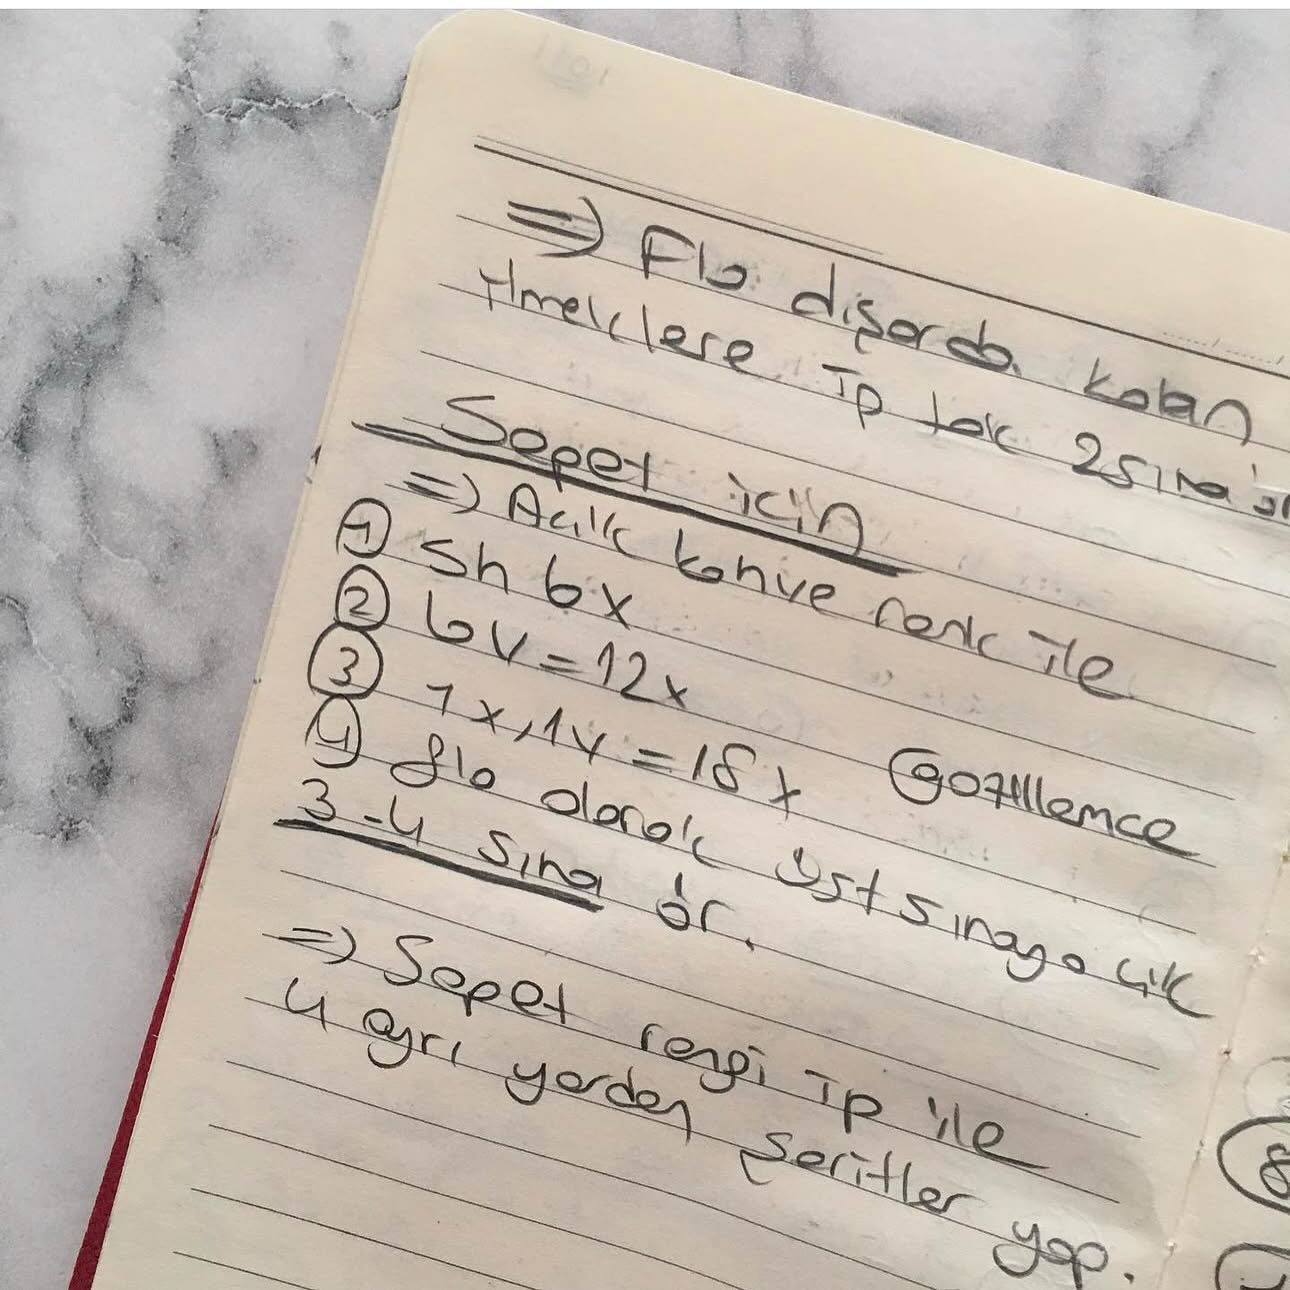 => Flo dışarda kalan
ilmeklere ip tak 2 sıra ör
Sepet için
=> Açık kahve renk ile
① Sh 6x
② 6v = 12x
③ 1x, 1v = 18x gözlemce
④ flo olarak üst sıraya çık
3-4 sıra ör.
=> Sepet rengi ip ile
4 ayrı yerden şeritler yap.
8